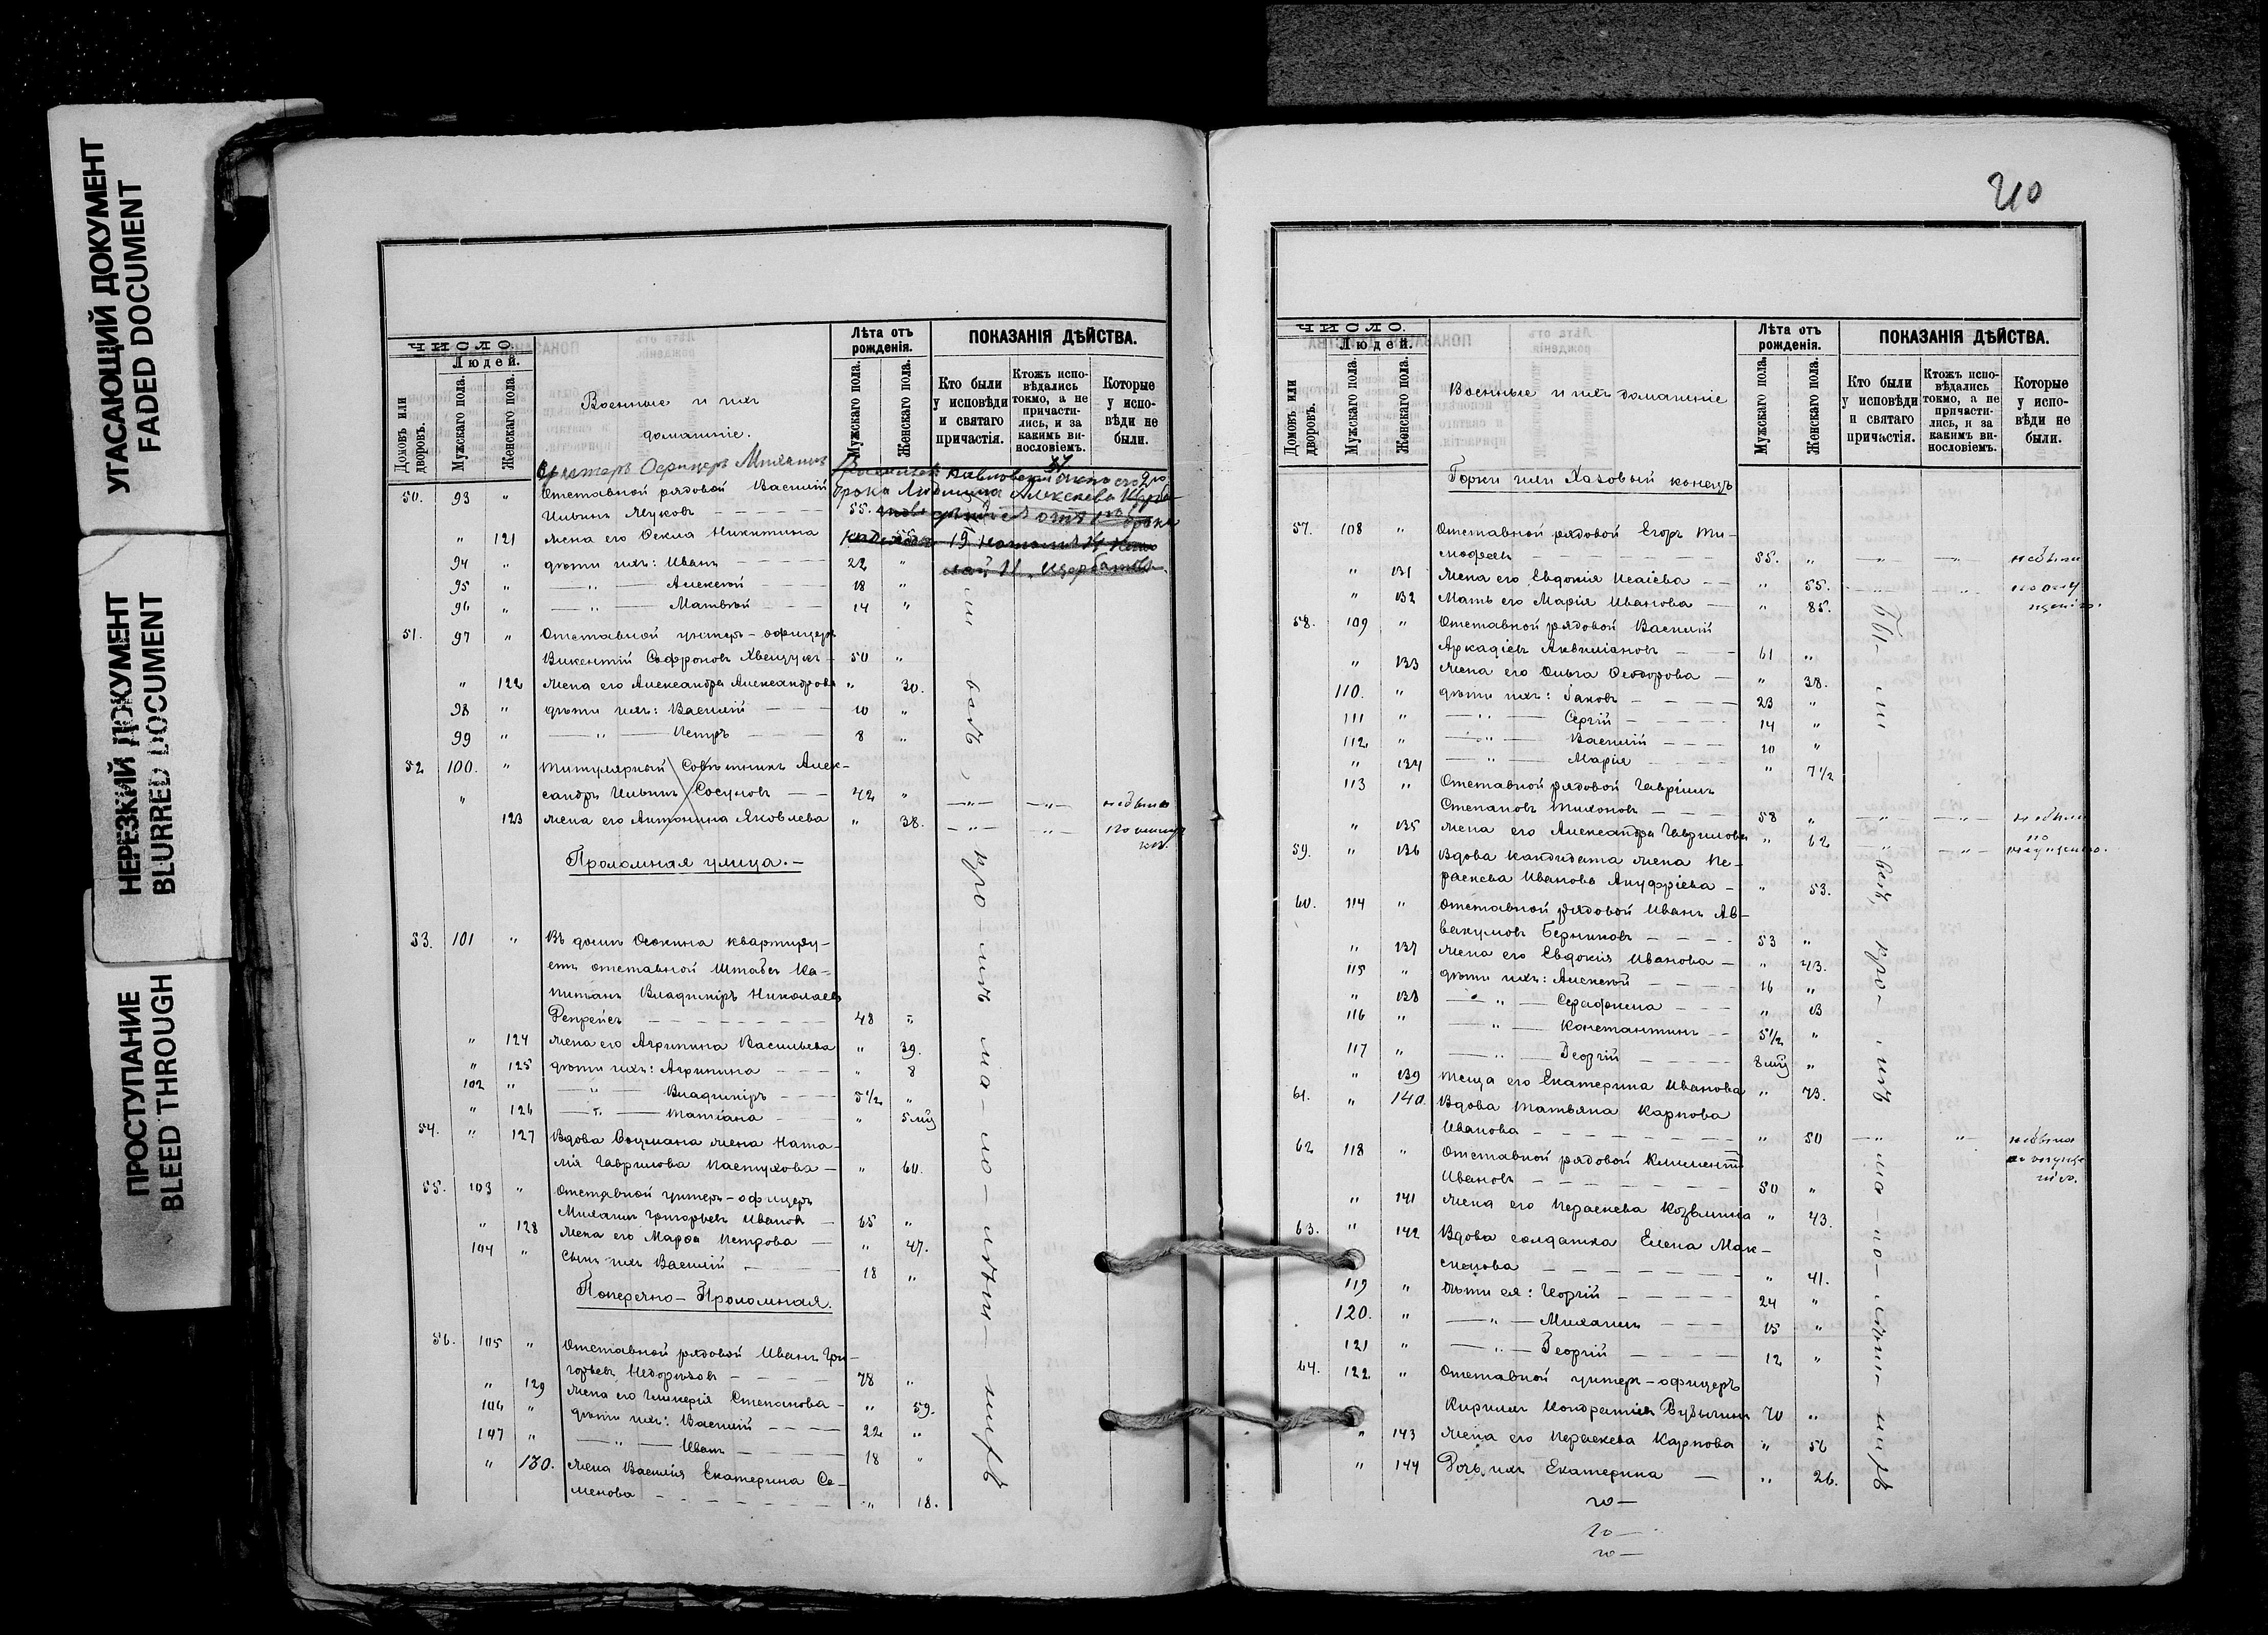 УГАСАЮЩИЙ ДОКУМЕНТ
FADED DOCUMENT
НЕРЕЗКИЙ ДОКУМЕНТ
BLURRED DOCUMENT
ПРОСТУПАНИЕ
BLEED THROUGH
ЧИСЛО.
Людей.
Домовъ или дворовъ.
Мужскаго пола.
Женскаго пола.
Военные и ихъ
домашніе.
Лѣта отъ рожденія.
Мужскаго пола.
Женскаго пола.
ПОКАЗАНІЯ ДѢЙСТВА.
Кто были у исповѣди и святаго причастія.
Ктожъ исповѣдались токмо, а не причастились, и за какимъ винословіемъ.
Которые у исповѣди не были.
Унтеръ Офицеръ Михаилъ
50. 93 " Отставной рядовой Василій
Ильинъ Жуковъ — 55.
" 121 жена его Ѳекла Никитина
94 " дѣти ихъ: Иванъ — 22 "
95 " — " — Алексѣй 18 "
96 " — " — Матвѣй — 14 "
51. 97 " Отставной унтеръ-офицеръ
Викентій Софроновъ — 50 "
" 122 жена его Александра Александрова " 30.
98 " дѣти ихъ: Василій — 10 "
99 " — " — Петръ — 8 "
52 100. " Титулярный Совѣтникъ Алек-
" сандръ Ильинъ Сосуновъ — 42 " — " — — " —
123 жена его Антонина Яковлева " 38. — " — — " —
Проломная улица. —
53. 101 " Въ домѣ Осокина квартиру-
етъ отставной Штабсъ Ка-
питанъ Владиміръ Николаевъ
48 "
" 124 жена его Агрипина Васильева " 39.
" 125 дѣти ихъ: Агрипина — " 8
102 " — " — Владиміръ — 5½ "
" 126 — " — Татіана — " 5 мѣс
54. " 127 Вдова Боцмана жена Ната-
лія Гаврилова Пастухова — " 60.
55. 103 " Отставной унтеръ-офицеръ
Михаилъ Григорьевъ Ивановъ — 65 "
" 128 Жена его Марѳа Петрова — " 47.
104 " Сынъ ихъ Василій — 18 "
Поперечно-Проломная.
56. 105 " Отставной рядовой Иванъ Гри-
горьевъ Недорѣзовъ — 78 "
" 129 жена его Гликерія Степанова — " 59.
106 " дѣти ихъ: Василій — 22 "
107 " — " — Иванъ — 18 "
" 130. жена Василія Екатерина Се-
менова — " 18.
210
ЧИСЛО.
Людей.
Домовъ или дворовъ.
Мужскаго пола.
Женскаго пола.
Военные и ихъ домашніе
Лѣта отъ рожденія.
Мужскаго пола.
Женскаго пола.
ПОКАЗАНІЯ ДѢЙСТВА.
Кто были у исповѣди и святаго причастія.
Ктожъ исповѣдались токмо, а не причастились, и за какимъ винословіемъ.
Которые у исповѣди не были.
Горки или Хазовый конецъ
57. 108 " Отставной рядовой Егоръ Ти-
моѳеевъ — 55. " — " — — " —
" 131 Жена его Евдокія Исаіева — " 55. — " — — " —
" 132 Мать его Марія Иванова — " 85.
58. 109 " Отставной рядовой Василій
Аркадіевъ — 61 "
" 133 Жена его Ольга Ѳеодорова — " 38.
110. " дѣти ихъ: Іаковъ — 23 "
111 " — " — Сергій — 14 "
112 " — " — Василій — 10 "
" 134 — " — Марія — " 7½
113 " Отставной рядовой Гавріилъ
Степановъ Тихоновъ — 58 " — " — — " —
" 135 Жена его Александра Гаврилова " 62 " — " —
59. " 136 Вдова кандидата жена Пе-
раскева Иванова Ануфріева — " 53.
60. 114 " Отставной рядовой Иванъ Ав-
вакумовъ Берниковъ — 53 "
" 137 Жена его Евдокія Иванова — " 43.
115 " дѣти ихъ: Алексѣй — 16 "
" 138 — " — Серафима — " 13
116 " — " — Константинъ — 5½ "
117 " — " — Георгій — 8 мѣс "
" 139 Теща его Екатерина Иванова " 73.
61. " 140. Вдова Татьяна Карпова
Иванова — " 50 — " — " —
62 118 " Отставной рядовой Климентъ
Ивановъ — 50 "
" 141 Жена его Пераскева Козьмина " 43.
63. " 142 Вдова солдатка Елена Мак-
симова — " 41.
119 " Дѣти ея: Георгій — 24 "
120. " — " — Михаилъ — 15 "
121 " — " — Георгій — 12 "
64. 122 " Отставной унтеръ-офицеръ
Кирилъ Кондратіевъ 70 "
" 143 Жена его Пераскева Карпова " 56
" 144 Дочь ихъ Екатерина — " 26.